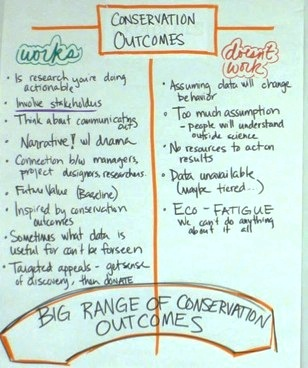 CONSERVATION
OUTCOMES
works
• Is research you're doing
actionable
• Involve stakeholders
• Think about communicating
out
• Narrative! w/ drama
• Connection b/w managers,
project designers, researchers
• Future Value (Baseline)
• Inspired by conservation
outcomes
• Sometimes what data is
useful for can't be forseen
• Targeted appeals - get sense
of discovery, then DONATE
doesn't
work
• Assuming data will change
behavior
• Too much assumption
- people will understand
outside science
• No resources to action
results
• Data unavailable
(maybe tiered...)
• ECO-FATIGUE
we can't do anything
about it all
BIG RANGE OF CONSERVATION
OUTCOMES